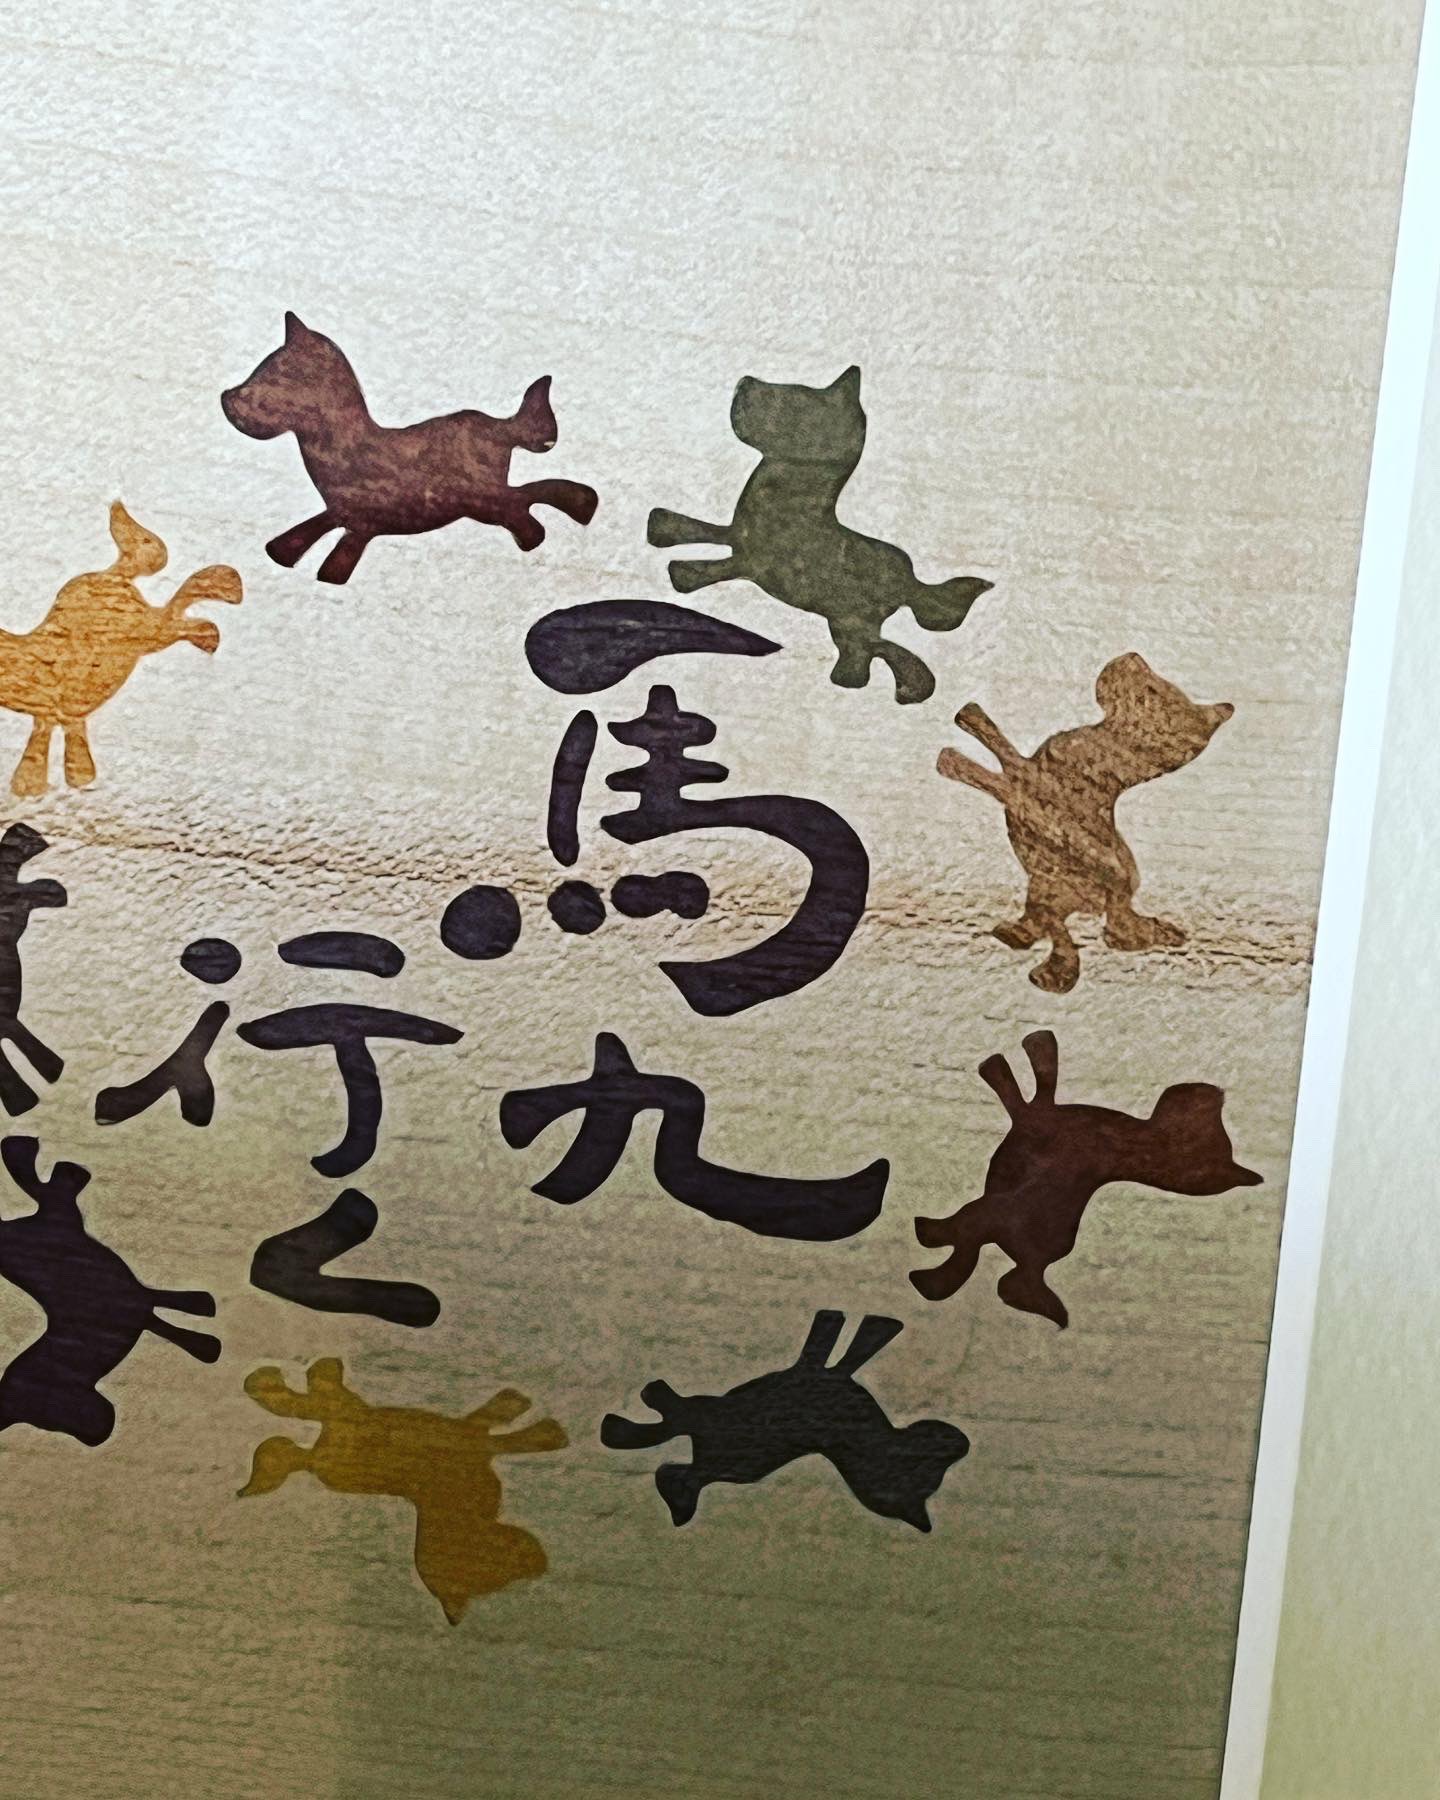 馬九
行く